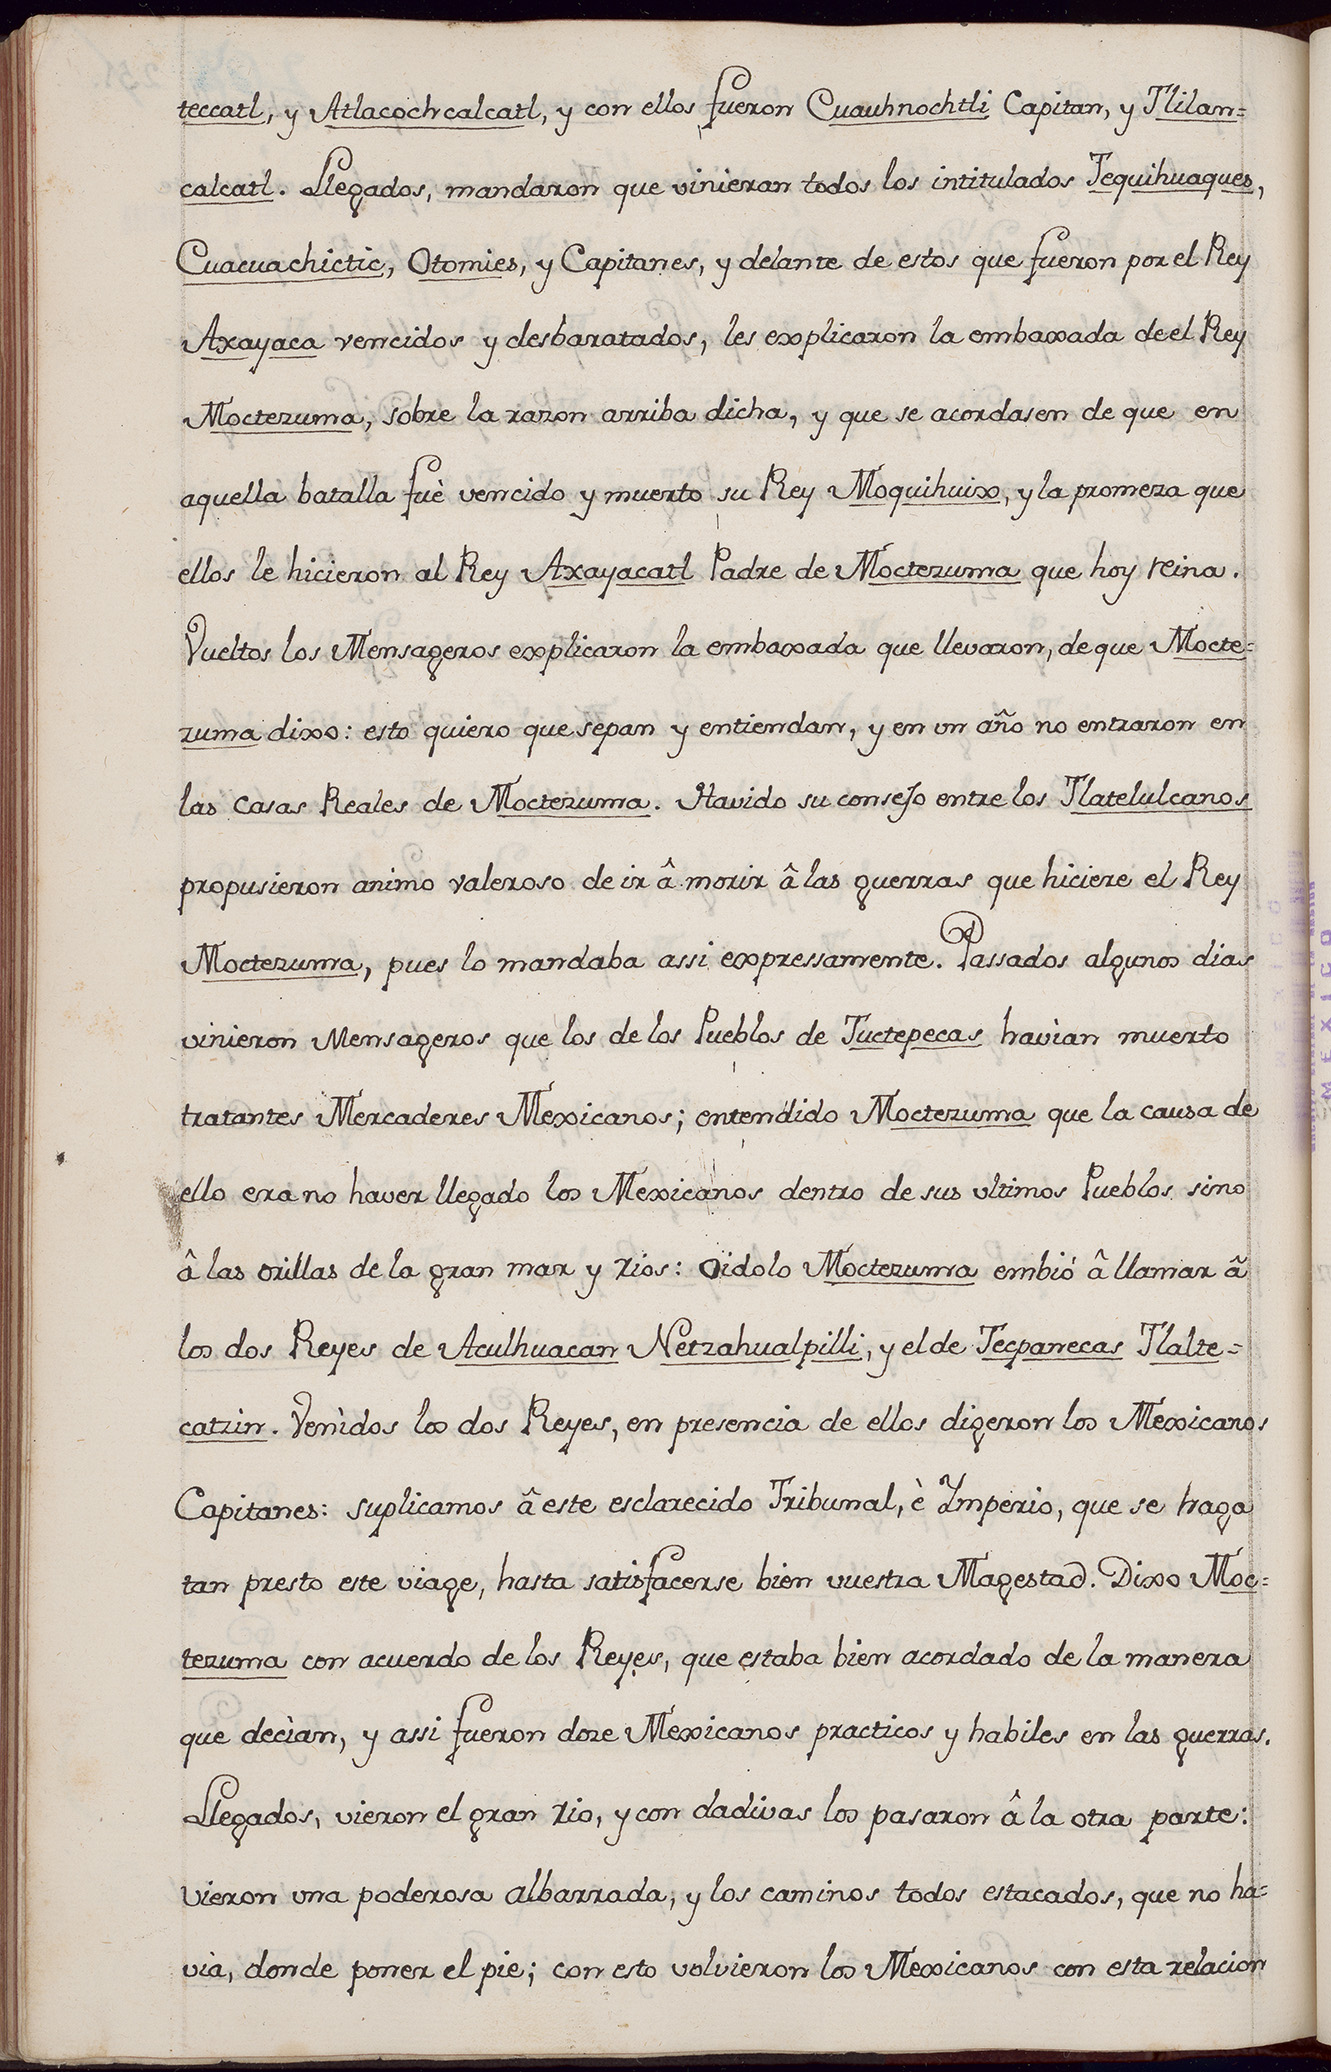 teccatl, y Atlacochcalcatl, y con ellos fueron Cuauhnochtli Capitan, y Tlilan=
calcatl. Llegados, mandaron que vinieran todos los intitulados Tequihuaques,
Cuacuachictic, Otomies, y Capitanes, y delante de estos que fueron por el Rey
Axayaca vencidos y desbaratados, les explicaron la embaxada de el Rey
Moctezuma, sobre la razon arriba dicha, y que se acordasen de que en
aquella batalla fuè vencido y muerto su Rey Moquihuix, y la promeza que
ellos le hicieron al Rey Axayacatl Padre de Moctezuma que hoy reina.
Vueltos los Mensageros explicaron la embaxada que llevaron, de que Mocte=
zuma dixo: esto quiero que sepan y entiendan, y en un año no entraron en
las Casas Reales de Moctezuma. Havido su consejo entre los Tlatelulcanos
propusieron animo valeroso de ir â morir â las guerras que hiciere el Rey
Moctezuma, pues lo mandaba assi expressamente. Passados algunos dias
vinieron Mensageros que los de los Pueblos de Tuctepecas havian muerto
tratantes Mercaderes Mexicanos; entendido Moctezuma que la causa de
ello era no haver llegado los Mexicanos dentro de sus ultimos Pueblos sino
â las orillas de la gran mar y rios: Oidolo Moctezuma embió â llamar â
los dos Reyes de Aculhuacan Netzahualpilli, y el de Tecpanecas Tlalte=
catzin. Venidos los dos Reyes, en presencia de ellos digeron los Mexicanos
Capitanes: suplicamos â este esclarecido Tribunal, è Imperio, que se haga
tan presto este viage, hasta satisfacerse bien vuestra Magestad. Dixo Moc=
tezuma con acuerdo de los Reyes, que estaba bien acordado de la manera
que decian, y assi fueron doze Mexicanos practicos y habiles en las guerras.
Llegados, vieron el gran rio, y con dadivas los pasaron â la otra parte:
vieron una poderosa albarrada, y los caminos todos estacados, que no ha=
via, donde poner el pie; con esto volvieron los Mexicanos con esta relacion
MEXICO